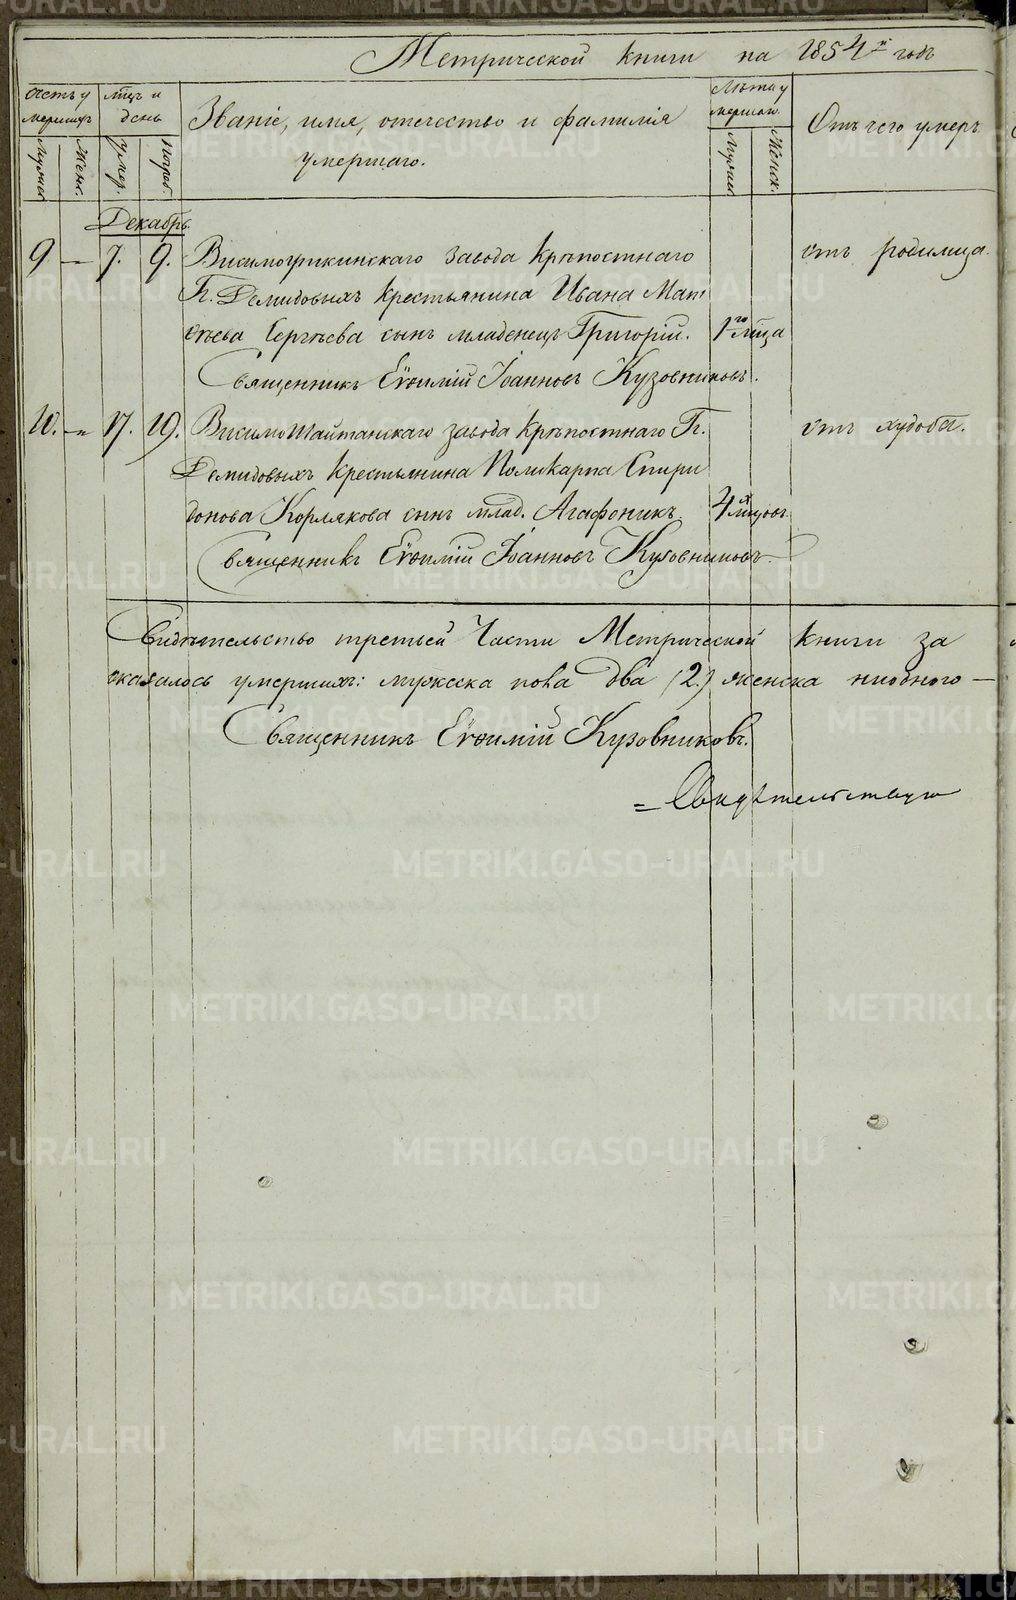 Метрической книги на 1854й годъ
Счетъ умершихъ
Мцъ и день
Званіе, имя, отечество и фамилія умершаго.
Лѣта умершаго
Отъ чего умеръ
Мужес Женс. умер. погреб. Мужес Женск.
Декабрь
9 — 7. 9. Висимоуткинскаго завода крѣпостнаго отъ родимца.
Гг. Демидовыхъ крестьянина Ивана Мат
вѣева Сергѣева сынъ младенецъ Григорій. 1го мца
Священникъ Евѳимій Іоанновъ Кузовниковъ.
10. — 17. 19. Висимошайтанскаго завода крѣпостнаго Гг. отъ худоба.
Демидовыхъ крестьянина Поликарпа Спири
донова Корлякова сынъ млад. Агафоникъ. 4х мцовъ
Священникъ Евѳимій Іоанновъ Кузовниковъ
Свидѣтельство третьей Части Метрической книги за
оказалось умершихъ: мужеска пола два (2.) женска ниодного —
Священникъ Евѳимій Кузовниковъ.
= Свидѣтельствую
METRIKI.GASO-URAL.RU